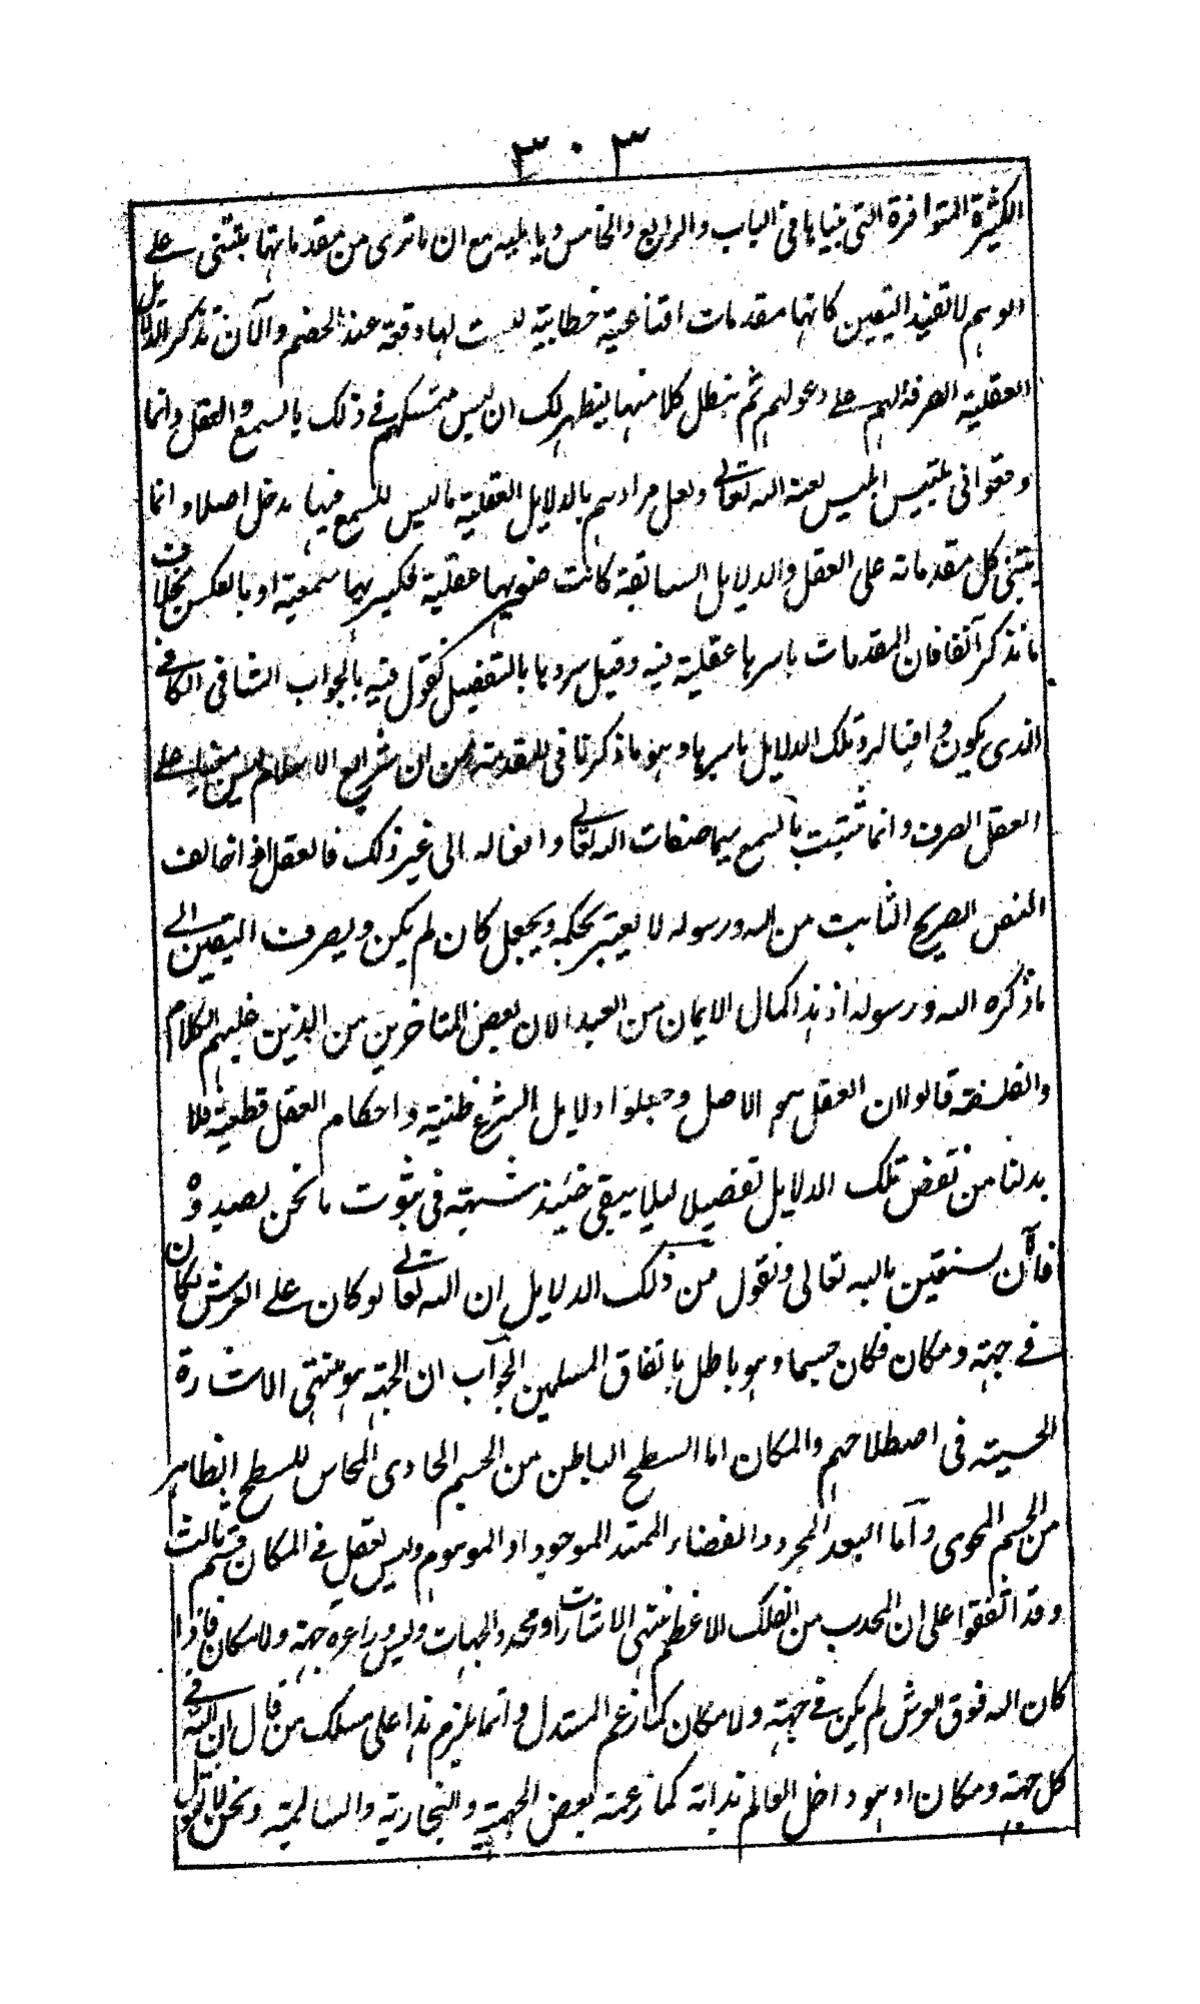 ٣٠٣
الكثيرة المتوافرة التى بيناها فى الباب والرابع والخامس وما يليه مع ان ما ترى من مقدماتها يبتنى على
الوهم لا تفيد اليقين كانها مقدمات اقناعية خطابية ليست لها وقعة عند الخصم والآن نذكر الدلايل
العقلية الصرفة لهم على دعولهم ثم نبطل كلا منها ليظهر لك ان ليس متمسكهم في ذلك بالسمع والعقل وانما
وقعوا فى تلبيس ابليس لعنه الله تعالى ولعل مرادهم بالدلايل العقلية ما ليس للسمع فيها مدخل اصلا وانما
يبتنى كل مقدماته على العقل والدلايل السابقة كانت صغويها عقلية وكبريها سمعية او بالعكس بخلاف
ما نذكر آنفا فان المقدمات باسرها عقلية فيه وقبل سردها بالتفصيل نقول فيه بالجواب الشافى الكافى
الذى يكون وافيا لرد تلك الدلايل باسرها وهو ما ذكرنا فى المقدمة من ان شرايع الاسلام ليس مبناها على
العقل الصرف وانما تثبت بالسمع سيما صفات الله تعالى وافعاله الى غير ذلك فالعقل اذا خالف
النص الصريح الثابت من الله ورسوله لا يعتبر بحكمه ويجعل كان لم يكن ويصرف اليقين الى
ما ذكره الله ورسوله اذ هذا كمال الايمان من العبد الا ان بعض المتاخرين من الذين غلبهم الكلام
والفلسفة قالوا ان العقل هو الاصل وجعلوا دلايل الشرع ظنية واحكام العقل قطعية فلا
بد لنا من نقض تلك الدلايل تفصيلا ليلا يبقى حينئذ شبهة فى ثبوت ما نحن بصدده
فالآن نستعين بالله تعالى ونقول من ذلك الدلايل ان الله تعالى لو كان على العرش لكان
في جهة ومكان فكان جسما وهو باطل باتفاق المسلمين الجواب ان الجهة هو منتهى الاشارة
الحسية فى اصطلاحهم والمكان اما السطح الباطن من الجسم الحاوى المماس للسطح الظاهر
من الجسم المحوى واما البعد المجرد والفضاء الممتد الموجود او الموهوم وليس يعقل في المكان قسم ثالث
وقد اتفقوا على ان المحدب من الفلك الاعظم منتهى الاشارات ومحدد الجهات وليس وراءه جهة ولا مكان فاذا
كان الله فوق العرش لم يكن في جهة ولا مكان كما زعم المستدل وانما يلزم هذا على مسلك من قال ان الله في
كل جهة ومكان او هو داخل العالم بذاته كما زعمته بعض الجهمية والنجارية والسالمية ونحن لا نقول